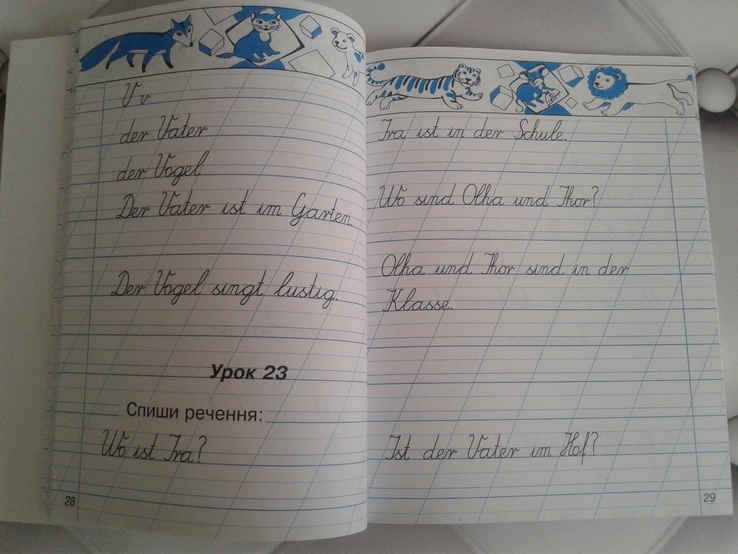 V v
der Vater
der Vogel
Der Vater ist im Garten.
Der Vogel singt lustig.
Урок 23
Спиши речення:
Wo ist Ira?
28
Ira ist in der Schule.
Wo sind Olha und Ihor?
Olha und Ihor sind in der
Klasse.
Ist der Vater im Hof?
29